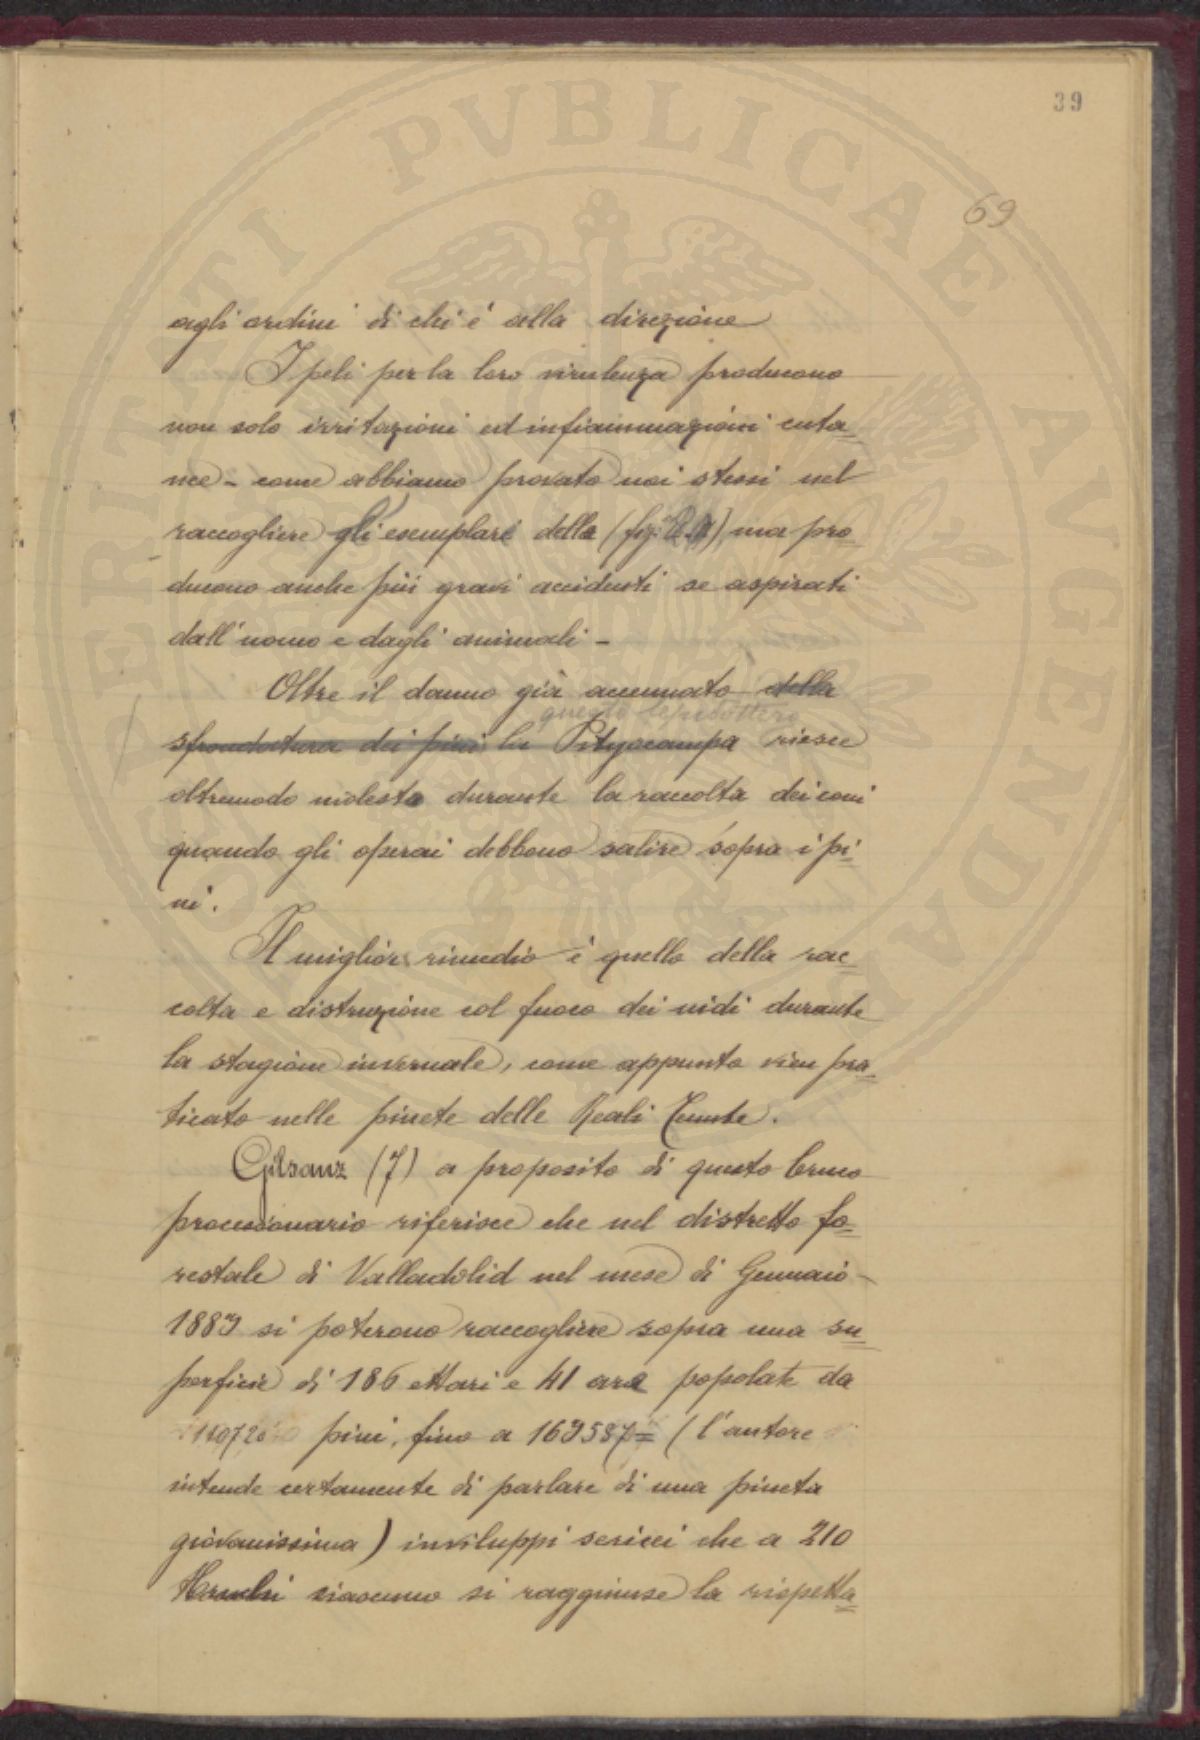 39
69
agli ordini di chi è alla direzione
I peli per la loro virulenza producono
non solo irritazioni ed infiammazioni cuta=
nee - come abbiamo provato noi stessi nel
raccogliere gli esemplari della (fig. ) ma pro=
ducono anche più gravi accidenti se aspirati
dall'uomo e dagli animali -
Oltre il danno già accennato della
questo lepidottero
sfrondatura dei pini la Pityocampa riesce
oltremodo molesta durante la raccolta dei coni
quando gli operai debbono salire sopra i pi=
ni.
Il miglior rimedio è quello della rac=
colta e distruzione col fuoco dei nidi durante
la stagione invernale, come appunto vien pra=
ticato nelle pinete delle Reali Tenute.
Gilsanz (7) a proposito di questo bruco
processionario riferisce che nel distretto fo=
restale di Valladolid nel mese di Gennaio
1889 si poterono raccogliere sopra una su=
perficie di 186 ettari e 41 are popolate da
pini, fino a 169587= (l'autore
intende certamente di parlare di una pineta
giovanissima) inviluppi serici che a 210
bruchi ciascuno si raggiunse la rispetta=
PVBLICAE AVGENDAE